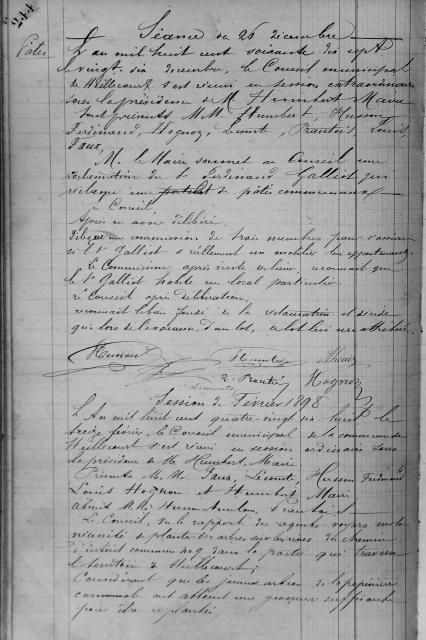 244
Séance du 26 décembre
Pâtis
L'an mil huit cent soixante dix sept
le vingt six décembre, le Conseil municipal
de Huillecourt s'est réuni en session extraordinaire
sous la présidence de M. Humbert Maire
Sont présents MM. Humbert, Husson
Ferdinand, Hognon, Lecomte, Prautois, Louis,
Faux,
M. le Maire soumet au Conseil une
réclamation du Sr Ferdinand Galliot qui
réclame une de pâtis communaux
Le Conseil
Après en avoir délibéré,
Délègue une commission de trois membres pour s'assurer
si le Sr Galliot a réellement un mobilier lui appartenant
La Commission après visite reconnait que
le Sr Galliot habite un local particulier
Le Conseil après délibération,
reconnait le bien fondé de la réclamation et décide
que lors de la vacance d'un lot, ce lot lui sera attribué.
Humbert
Hognon
Session de Février 1898
L'An mil huit cent quatre-vingt dix huit le
treize février, le Conseil municipal de la commune de
Huillecourt s'est réuni en session ordinaire sous
la présidence de M. Humbert, Maire
Présents MM. Faux, Lecomte, Husson Ferdinand
Louis Hognon et Humbert Maire
Absents MM. Husson Prautois
Le Conseil, vu le rapport des agents voyers sur la
nécessité de planter des arbres sur les rives du chemin
d'intérêt commun dans la partie qui traverse
le territoire de Huillecourt;
Considérant que les jeunes arbres de la pépinière
communale ont atteint une grosseur suffisante
pour être replantés,